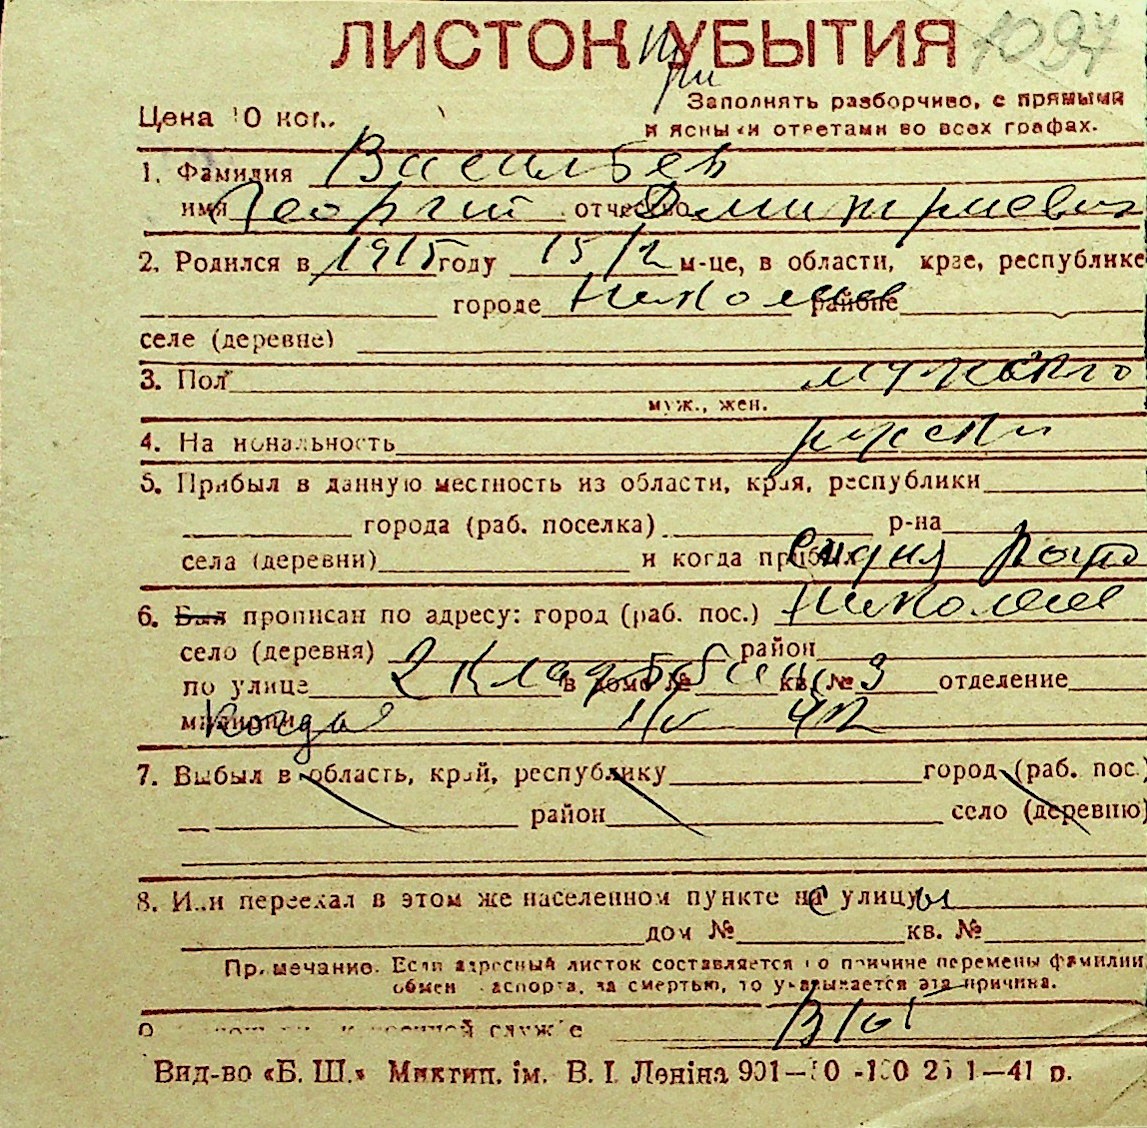 ЛИСТОК при УБЫТИЯ 1097
Заполнять разборчиво, с прямыми
Цена 10 коп.
и ясными ответами во всех графах.
1. Фамилия Васильев
имя Георгий отчество Дмитриевич
2. Родился в 1915 году 15/2 м-це, в области, крае, республике
городе Николаев районе
селе (деревне)
3. Пол мужско
муж., жен.
4. Национальность русски
5. Прибыл в данную местность из области, края, республики
города (раб. поселка) р-на
села (деревни) и когда прибыл
6. Был прописан по адресу: город (раб. пос.) Николаев
село (деревня) район
по улице 2 в доме № кв. № 9 отделение
милиции Когда 42
7. Выбыл в область, край, республику город (раб. пос.)
район село (деревню)
8. Или переехал в этом же населенном пункте на с улицу ы
дом № кв. №
Примечание. Если адресный листок составляется по причине перемены фамилии,
обмен паспорта, за смертью, то указывается эта причина.
О военной службе
Вид-во «Б. Ш.» Миктип. ім. В. І. Леніна 901— 41 р.